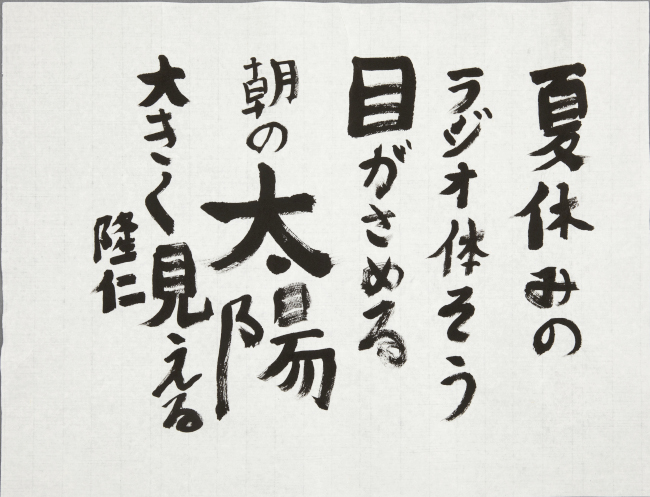 夏休みの
ラジオ体そう
目がさめる
朝の太陽
大きく見える
隆仁